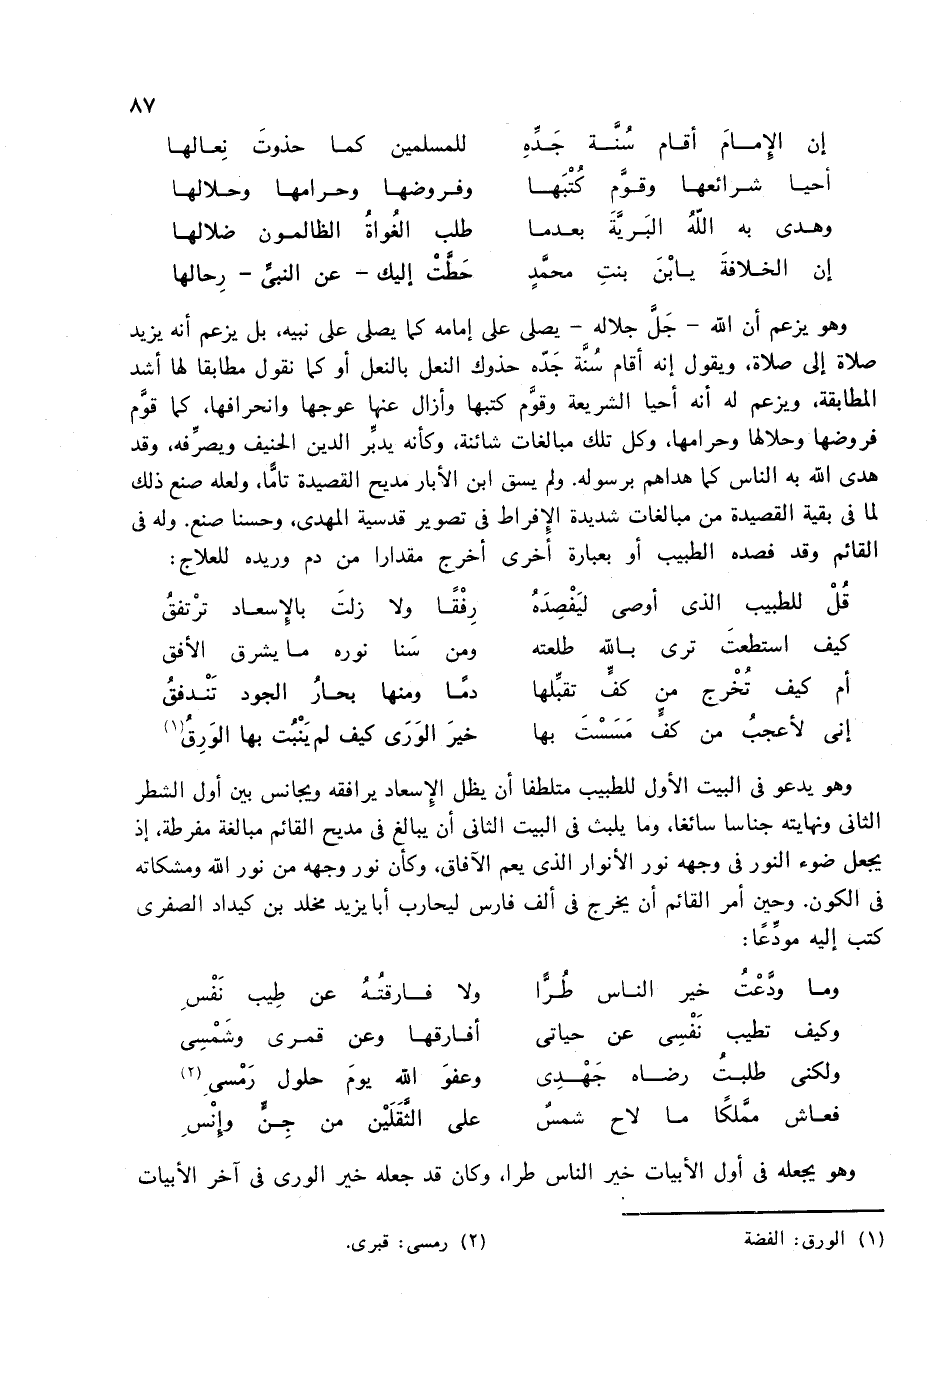 ٨٧
إن الإمـامَ أقـام سُنَّـة جَـدِّهِ للمسلمين كمـا حذوتَ نِعـالهـا
أحيـا شـرائعهـا وقـوَّم كُتْبَهـا وفـروضهـا وحـرامهـا وحـلالهـا
وهـدى به اللّهُ البَريَّةَ بعدمـا طلب الغُواةُ الظالمـون ضلالهـا
إن الخلافةَ يـابْنَ بنتِ محمَّدٍ حَطَّتْ إليك – عن النبيِّ – رِحالها
وهو يزعم أن الله – جَلَّ جلاله – يصلى على إمامه كما يصلى على نبيه، بل يزعم أنه يزيد
صلاة إلى صلاة، ويقول إنه أقام سُنَّة جَدّه حذوك النعل بالنعل أو كما نقول مطابقا لها أشد
المطابقة، ويزعم له أنه أحيا الشريعة وقوَّم كتبها وأزال عنها عوجها وانحرافها، كما قوَّم
فروضها وحلالها وحرامها، وكل تلك مبالغات شائنة، وكأنه يدبِّر الدين الحنيف ويصرِّفه، وقد
هدى الله به الناس كما هداهم برسوله. ولم يسق ابن الأبار مديح القصيدة تامًّا، ولعله صنع ذلك
لما فى بقية القصيدة من مبالغات شديدة الإفراط فى تصوير قدسية المهدى، وحسنا صنع. وله فى
القائم وقد فصده الطبيب أو بعبارة أخرى أخرج مقدارا من دم وريده للعلاج:
قُلْ للطبيب الذى أوصى ليَفْصِدَهُ رِفْقًـا ولا زلتَ بالإسعـاد ترْتفقُ
كيف استطعتَ ترى بـالله طلعته ومن سَنا نوره مـا يشرق الأفق
أم كيف تُخْرج من كفٍّ تقبِّلها دمًـا ومنها بحـارُ الجود تَنْـدفقُ
إنى لأعجبُ من كفٍّ مَسَسْتَ بها خيرَ الوَرَى كيف لم يَنْبُت بها الوَرِقُ(١)
وهو يدعو فى البيت الأول للطبيب متلطفا أن يظل الإسعاد يرافقه ويجانس بين أول الشطر
الثانى ونهايته جناسا سائغا، وما يلبث فى البيت الثانى أن يبالغ فى مديح القائم مبالغة مفرطة، إذ
يجعل ضوء النور فى وجهه نور الأنوار الذى يعم الآفاق، وكأن نور وجهه من نور الله ومشكاته
فى الكون. وحين أمر القائم أن يخرج فى ألف فارس ليحارب أبا يزيد مخلد بن كيداد الصفرى
كتب إليه مودِّعًا:
ومـا ودَّعْتُ خير النـاس طُـرًّا ولا فـارقتُـهُ عن طِيب نَفْسِ
وكيف تطيب نَفْسِى عن حياتى أفـارقهـا وعن قمـرى وشَمْسِى
ولكنى طلبـتُ رضـاه جَهْـدِى وعفوَ الله يومَ حلول رَمْسىِ(٢)
فعـاش مملَّكًا مـا لاح شمسٌ على الثَّقَلَيْن من جِـنٍّ وإنْسِ
وهو يجعله فى أول الأبيات خير الناس طرا، وكان قد جعله خير الورى فى آخر الأبيات
(١) الورق: الفضة (٢) رمسى: قبرى.